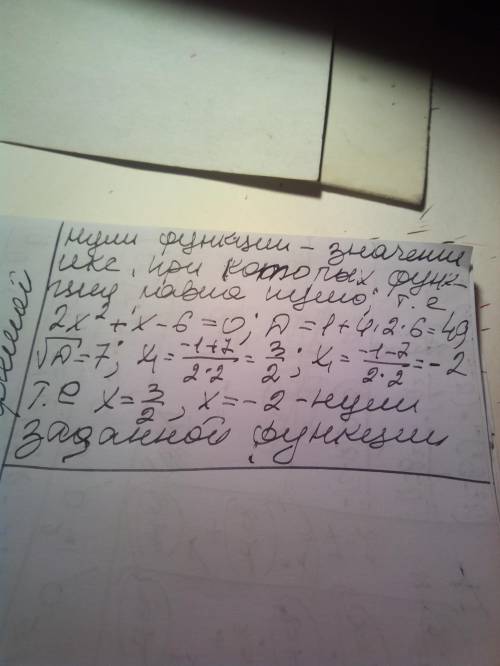 нули функции – значение
икс, при которых функ-
ция равна нулю, т.е
2x² + x – 6 = 0; D = 1 + 4·2·6 = 49
√D = 7; x₁ = (-1+7)/(2·2) = 3/2; x₁ = (-1-7)/(2·2) = -2
т.е x = 3/2, x = -2 – нули
заданной функции